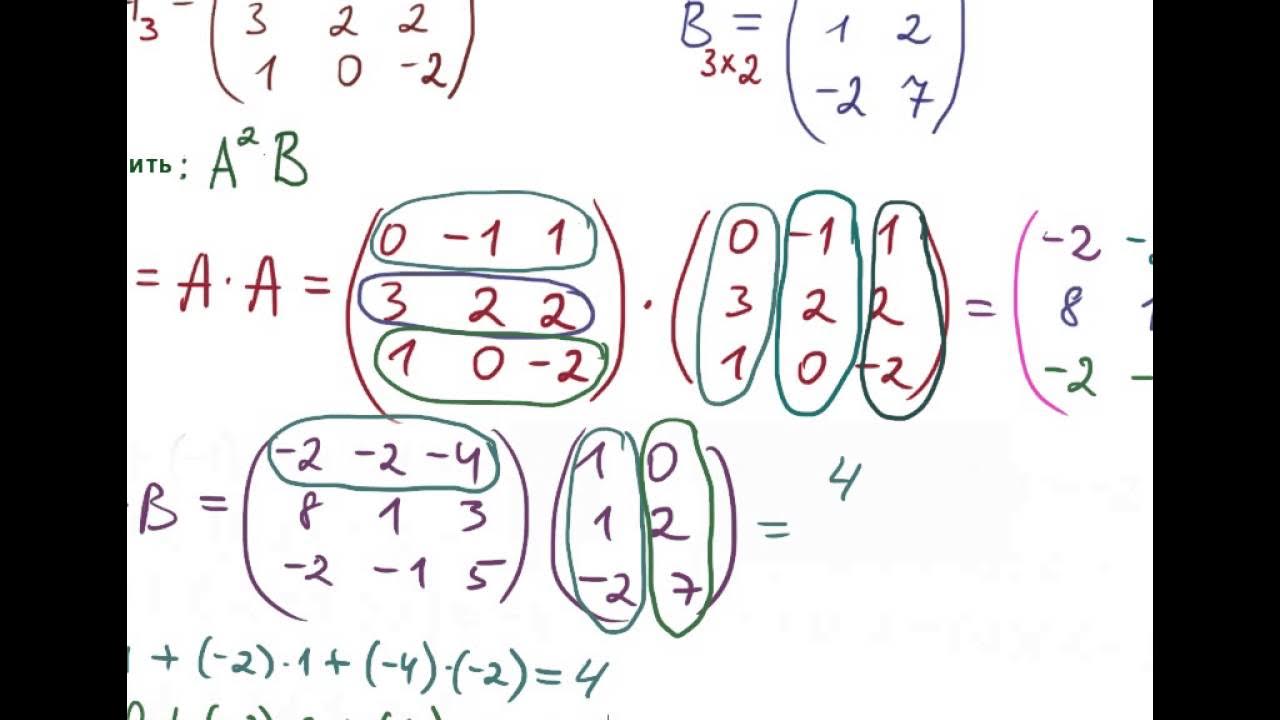 3 2 2
3 1 0 -2
B =
3×2
1 2
-2 7
ить: A² B
= A · A =
0 -1 1
3 2 2
1 0 -2
·
0 -1 1
3 2 2
1 0 -2
=
-2 -
8 1
-2 -
B =
-2 -2 -4
8 1 3
-2 -1 5
1 0
1 2
-2 7
= 4
1 + (-2)·1 + (-4)·(-2) = 4